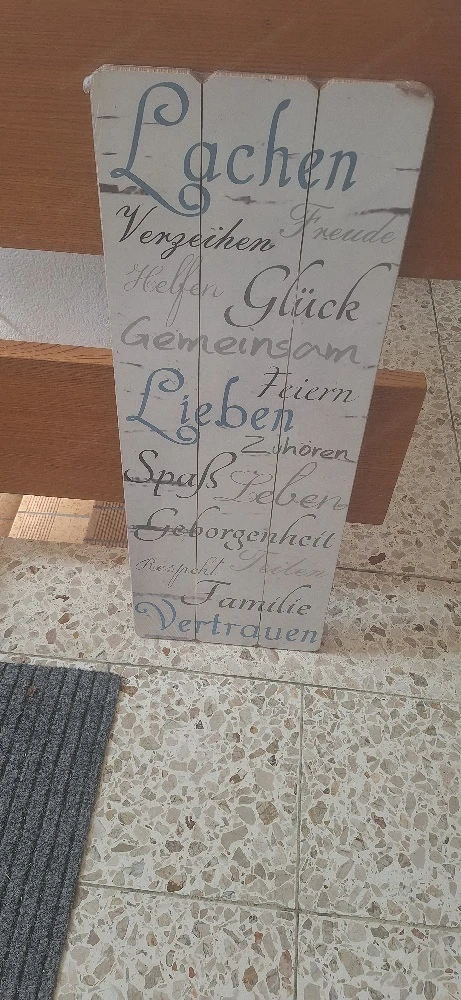 Lachen
Verzeihen Freude
Helfen Glück
Gemeinsam
Feiern
Lieben
Zuhören
Spaß Leben
Geborgenheit
Respekt Teilen
Familie
Vertrauen